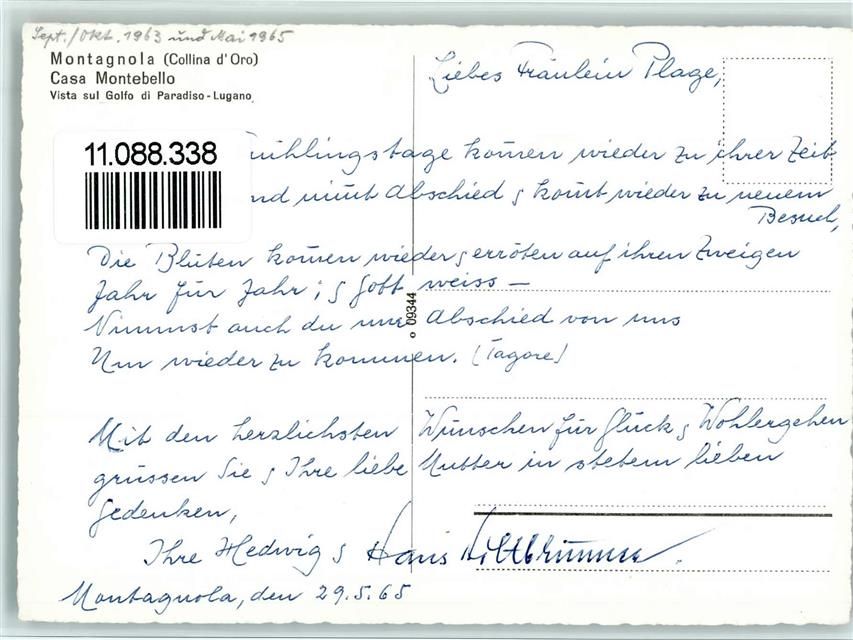 Sept./Okt. 1963 und Mai 1965
Montagnola (Collina d'Oro)
Casa Montebello
Vista sul Golfo di Paradiso - Lugano
Liebes Fräulein Plage,
11.088.338
ühlingstage kom̄en wieder zu ihrer Zeit
nd nim̄t Abschied & kom̄t wieder zu neuem
Besuch,
Die Blüten kom̄en wieder & erröten auf ihren Zweigen
Jahr für Jahr; & Gott weiss —
Nimmst auch du nur Abschied von uns
Um wieder zu kommen. (Tagore)
09344
Mit den herzlichsten Wünschen für Glück & Wohlergehen
grüssen Sie & Ihre liebe Mutter in stetem lieben
Gedenken,
Ihre Hedwig & Hans
Montagnola, den 29.5.65